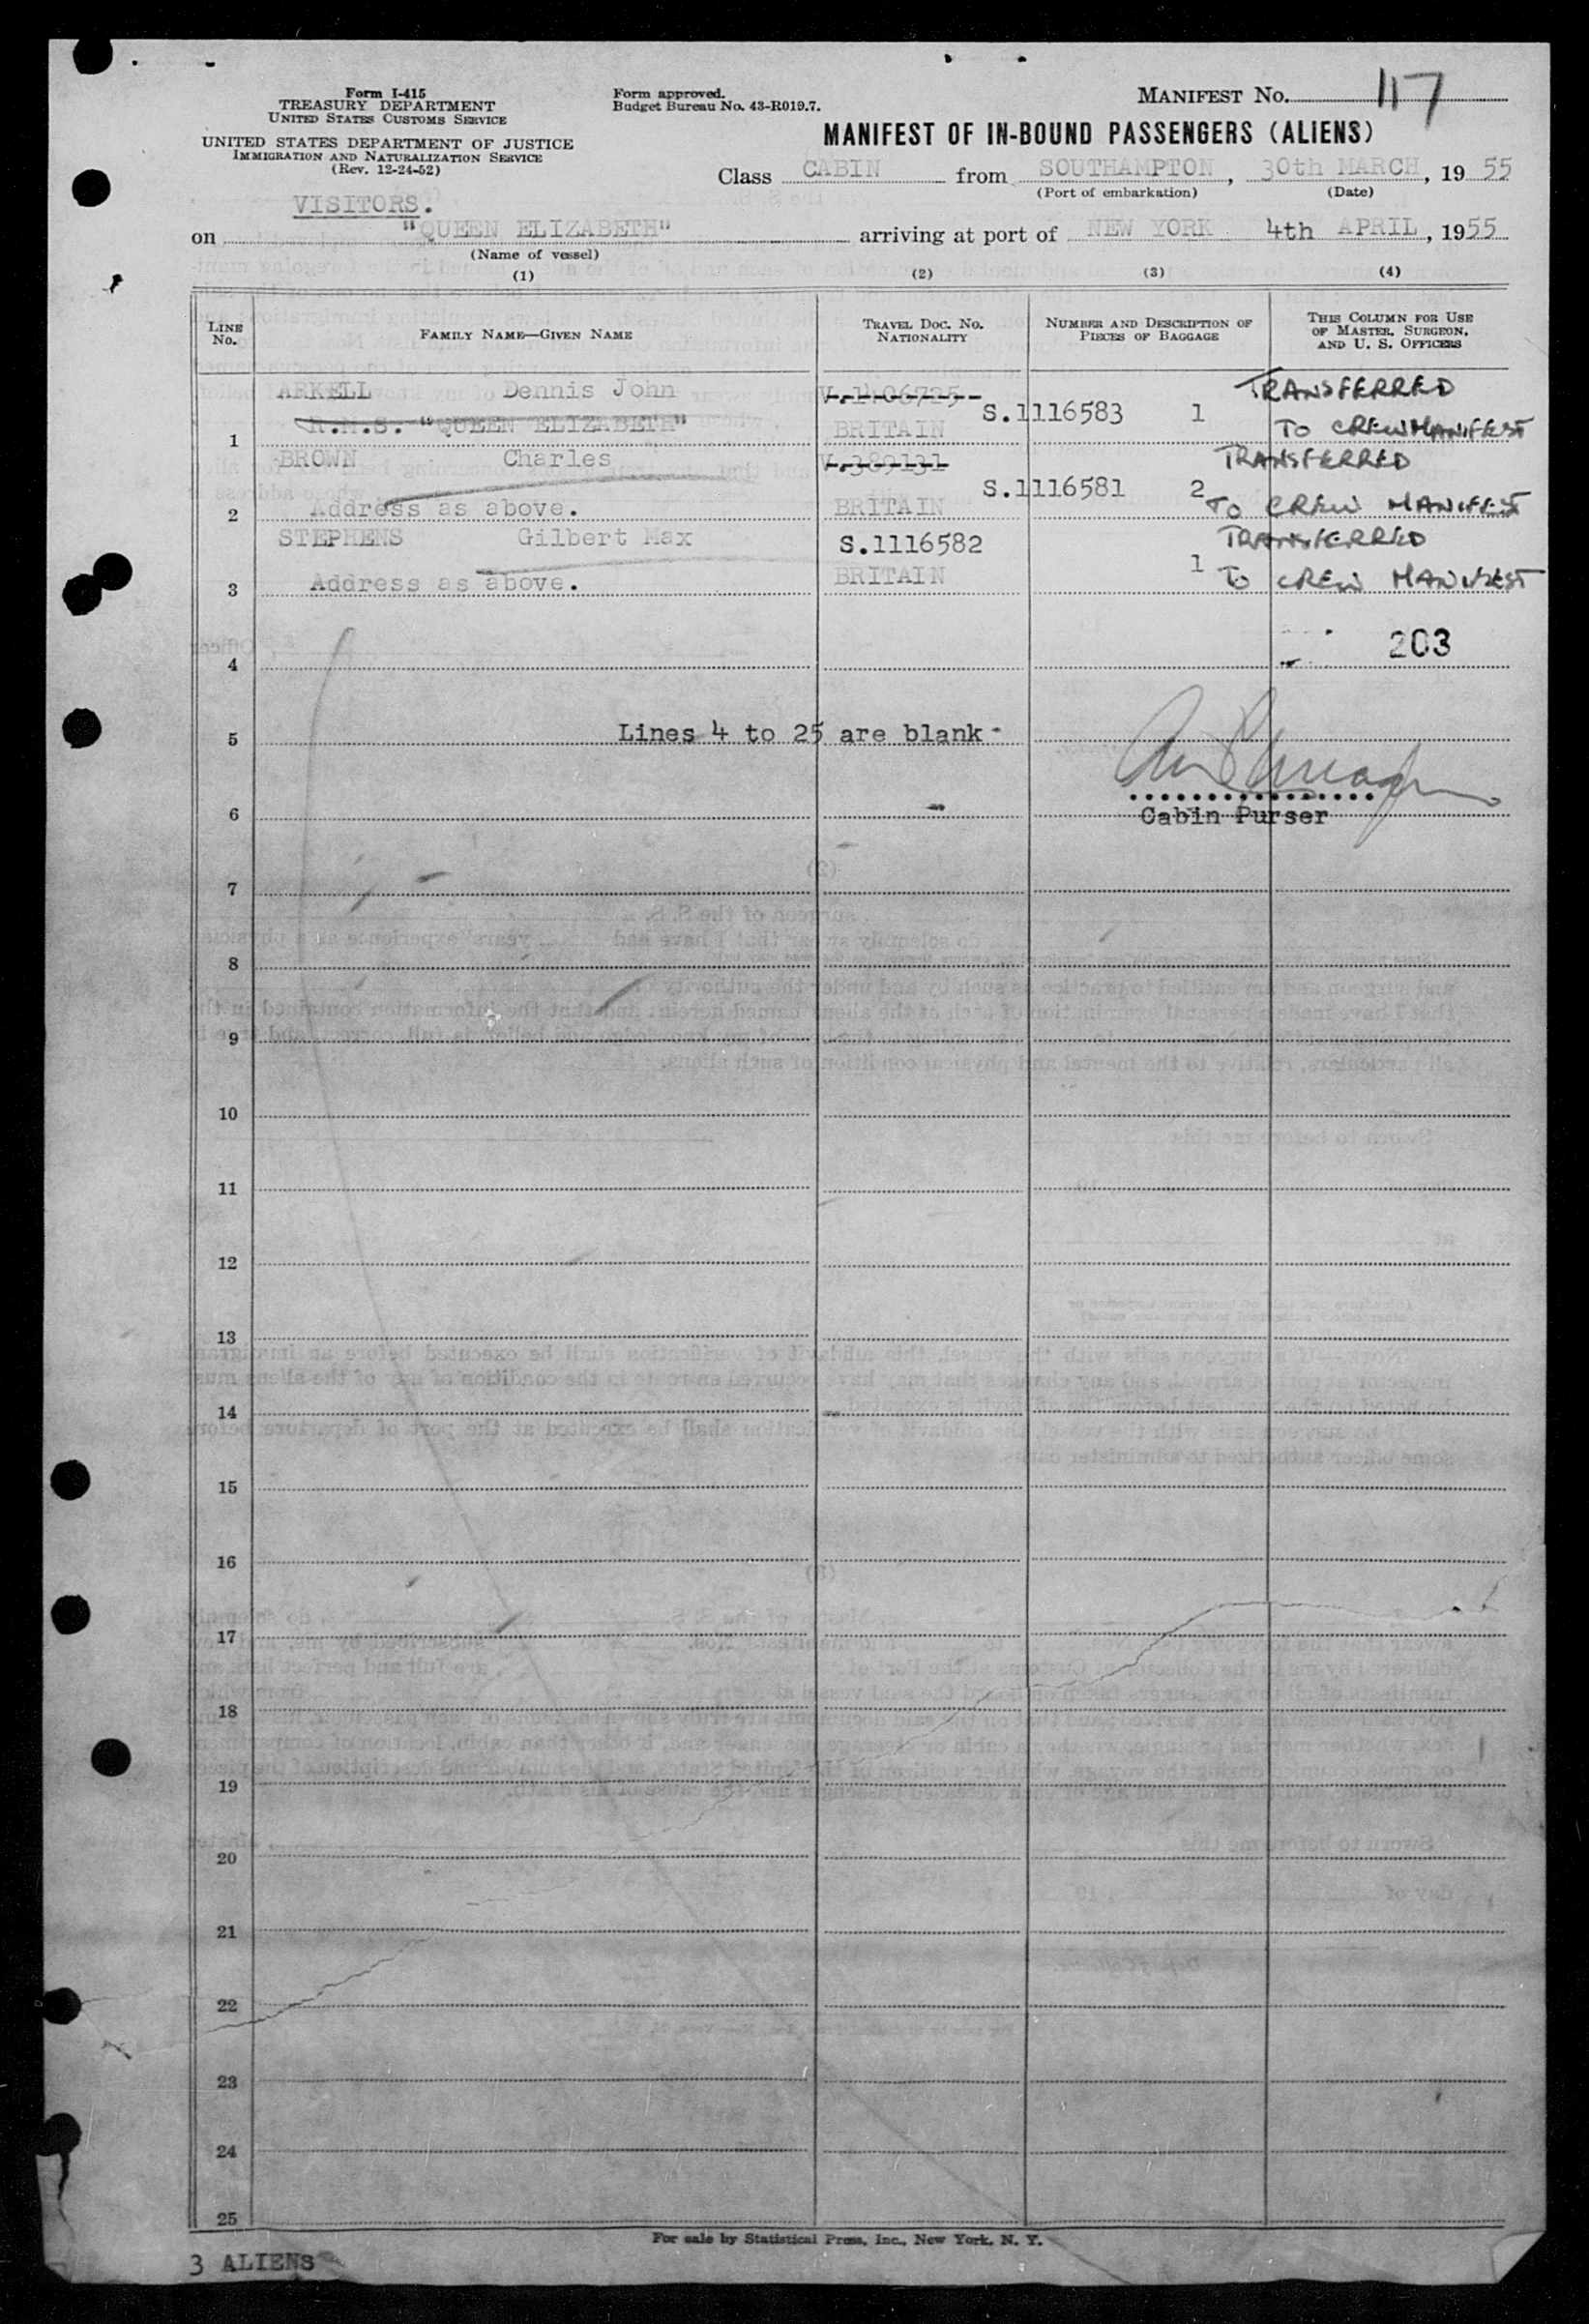 Form I-415
TREASURY DEPARTMENT
UNITED STATES CUSTOMS SERVICE
UNITED STATES DEPARTMENT OF JUSTICE
IMMIGRATION AND NATURALIZATION SERVICE
(Rev. 12-24-52)
Form approved.
Budget Bureau No. 43-R019.7.
MANIFEST NO. 117
MANIFEST OF IN-BOUND PASSENGERS (ALIENS)
Class CABIN from SOUTHAMPTON, 30th MARCH, 1955
(Port of embarkation) (Date)
VISITORS.
on "QUEEN ELIZABETH" arriving at port of NEW YORK 4th APRIL, 1955
(Name of vessel)
(1) (2) (3) (4)
LINE NO.
FAMILY NAME—GIVEN NAME
TRAVEL DOC. NO. NATIONALITY
NUMBER AND DESCRIPTION OF PIECES OF BAGGAGE
THIS COLUMN FOR USE OF MASTER, SURGEON, AND U. S. OFFICERS
ARKELL Dennis John V.1406725 TRANSFERRED
R.M.S. "QUEEN ELIZABETH" S.1116583 1
1 BRITAIN TO CREW MANIFEST
BROWN Charles V.389131 TRANSFERRED
S.1116581 2
2 Address as above. BRITAIN TO CREW MANIFEST
STEPHENS Gilbert Max S.1116582 TRANSFERRED
3 Address as above. BRITAIN 1 TO CREW MANIFEST
203
4
5 Lines 4 to 25 are blank
6 Cabin Purser
7
8
9
10
11
12
13
14
15
16
17
18
19
20
21
22
23
24
25
For sale by Statistical Press, Inc., New York, N. Y.
3 ALIENS